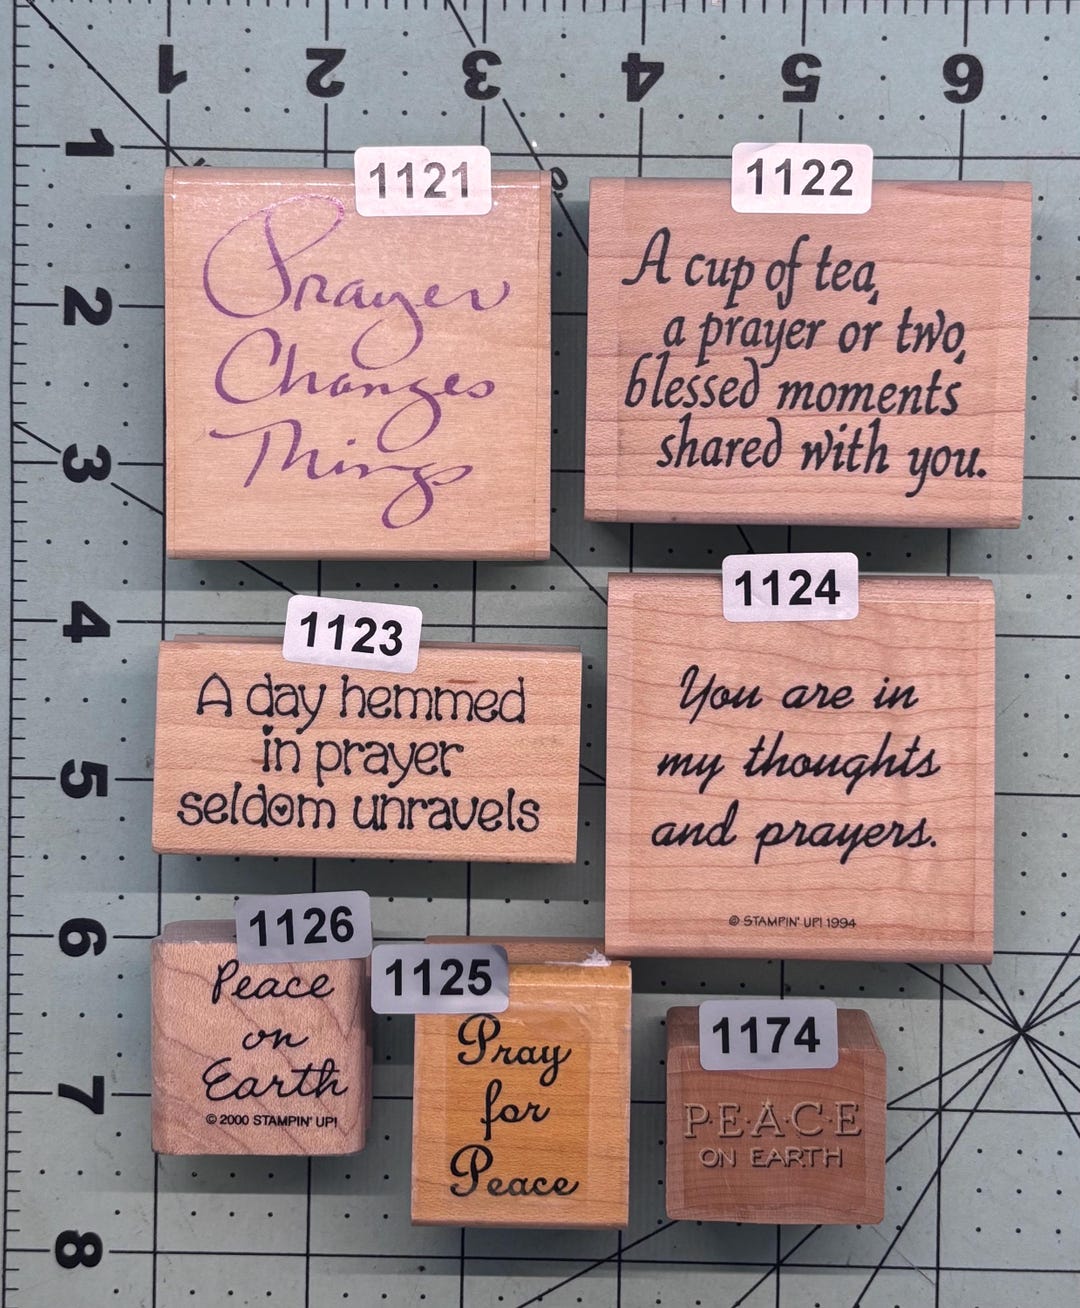 1 2 3 4 5 6
1
2
3
4
5
6
7
8
1121
Prayer
Changes
Things
1122
A cup of tea,
a prayer or two,
blessed moments
shared with you.
1123
A day hemmed
in prayer
seldom unravels
1124
You are in
my thoughts
and prayers.
© STAMPIN' UP! 1994
1126
Peace
on
Earth
© 2000 STAMPIN' UP!
1125
Pray
for
Peace
1174
PEACE
ON EARTH